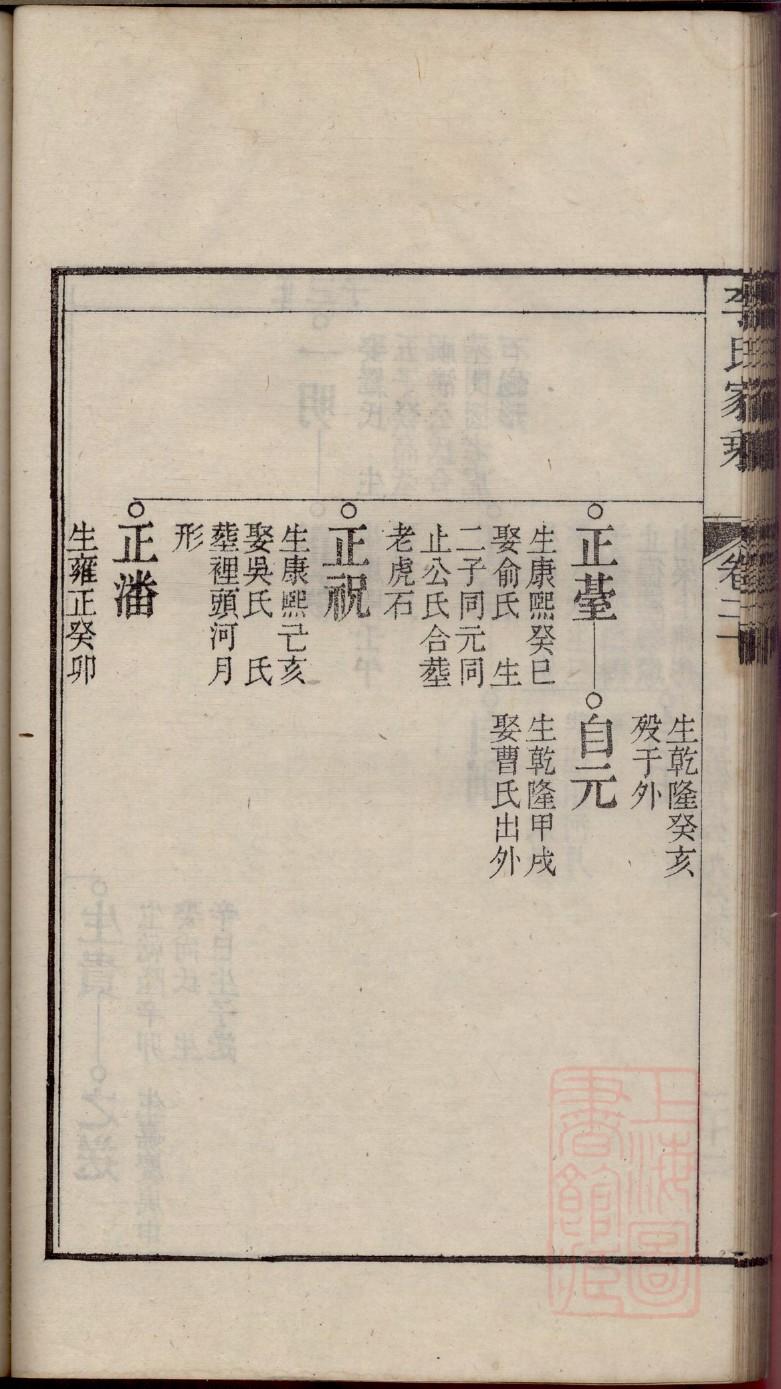 李氏家乘
卷二
生乾隆癸亥
歿于外
正䑓
自元
生康熙癸巳
娶俞氏 生
二子同元同
止公氏合塟
老虎石
生乾隆甲戌
娶曹氏出外
正祝
生康熙己亥
娶吳氏 氏
塟裡頭河月
形
正潘
生雍正癸卯
上海圖
書館藏